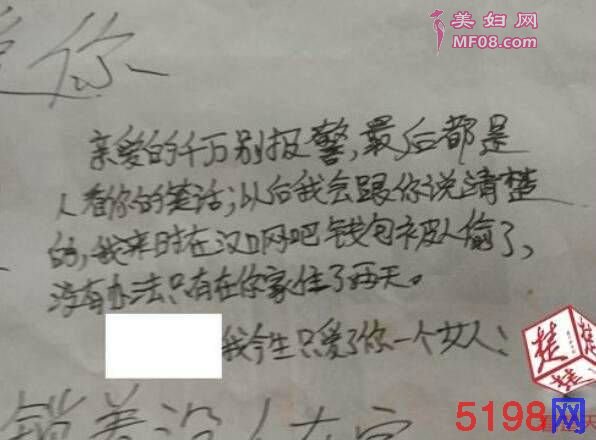 美妇网
MF08.com
爱你
亲爱的千万别报警，最后都是
人看你的笑话；以后我会跟你说清楚
的，我来时在汉口网吧钱包被人偷了，
没有办法只有在你家住了两天。
我今生只爱了你一个女人；
楚
楚
楚
5198网